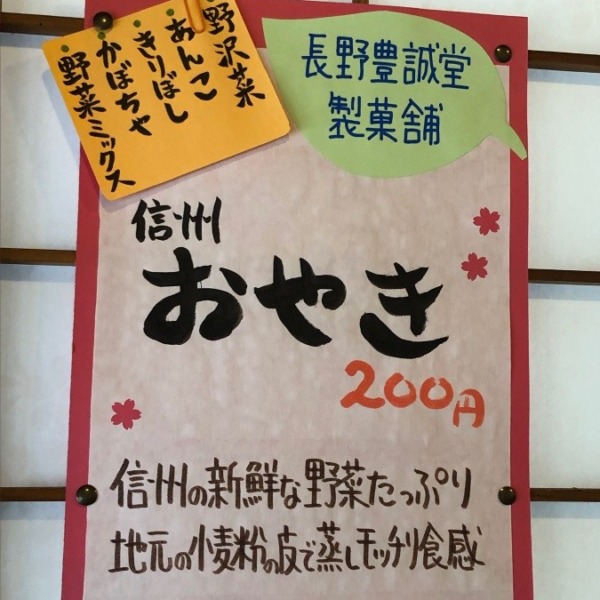 野沢菜
あんこ
きりぼし
かぼちゃ
野菜ミックス
長野豊誠堂
製菓舗
信州
おやき
200円
信州の新鮮な野菜たっぷり
地元の小麦粉の皮で蒸しモッチリ食感